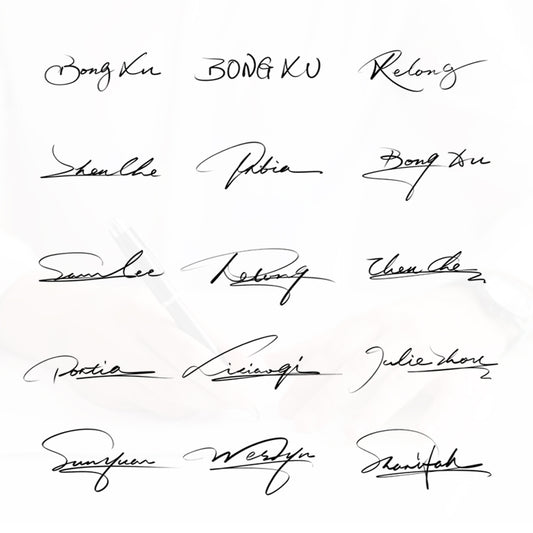 Bong Xu BONG XU Relong
Zhen Che Pabia Bong Xu
Sam Lee Relong Zhen Che
Portia Lixiaoqi Julie Zhou
Sunyuan